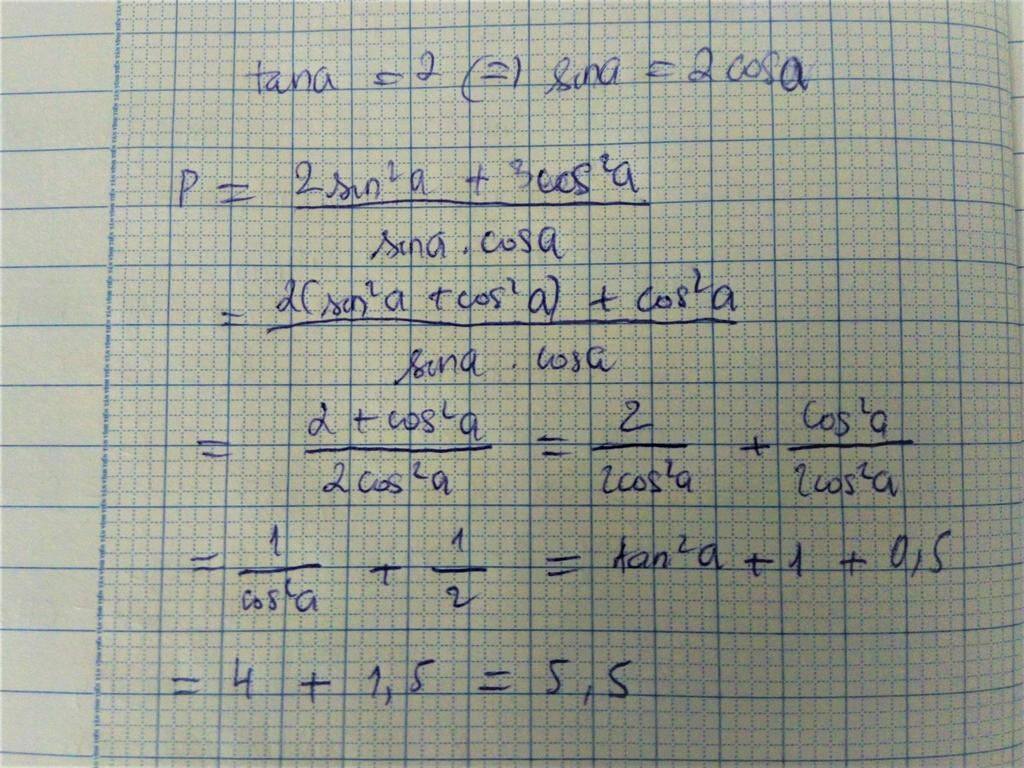 tana = 2 (=) sina = 2 cosa
P = (2sin²a + 3cos²a) / (sina . cosa)
= (2(sin²a + cos²a) + cos²a) / (sina . cosa)
= (2 + cos²a) / (2cos²a) = 2 / (2cos²a) + cos²a / (2cos²a)
= 1 / (cos²a) + 1 / 2 = tan²a + 1 + 0,5
= 4 + 1,5 = 5,5